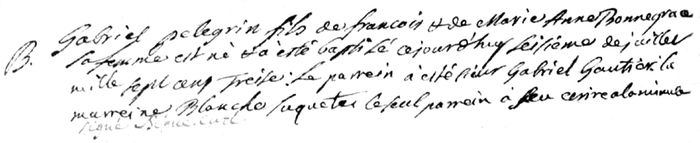 B. Gabriel pelegrin fils de francois & de Marie Anne Bonnegrace
sa femme est né & a été baptisé cejourd'huy seisième de juillet
mille sept cens treise : Le parrein a été sieur Gabriel Gautier la
marreine Blanche le seul parrein a seu ecrire
signé